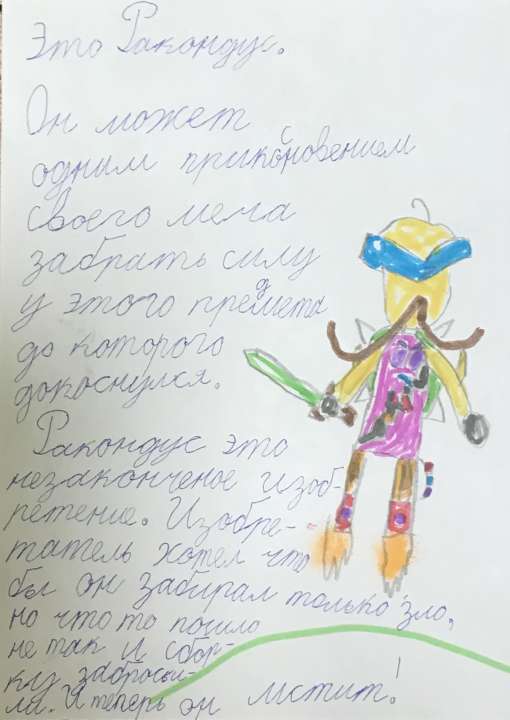 Это Ракондус.
Он может
одним прикосновением
своего меча
забрать силу
у этого предмета
до которого
докоснулся.
Ракондус это
незаконченое изоб-
ретение. Изобре-
татель хотел что
бы он забирал только зло,
но что то пошло
не так и сбор-
ку забросы-
ли. И теперь он мстит!